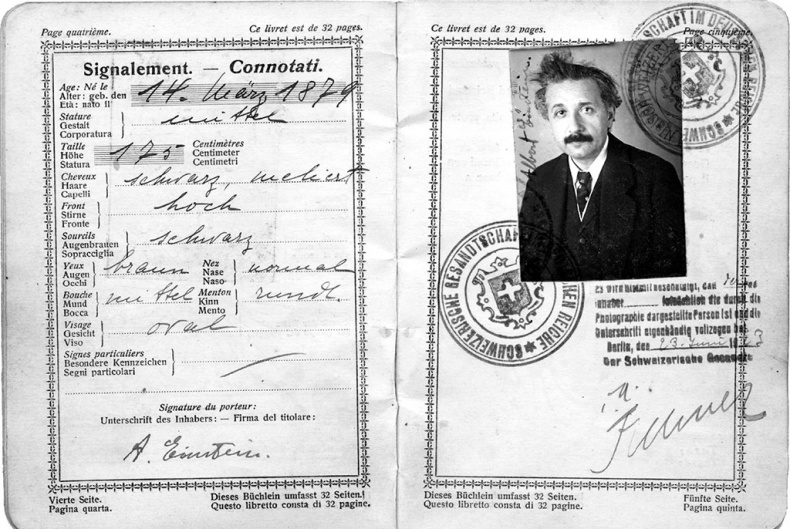 Page quatrième.
Ce livret est de 32 pages.
Signalement. — Connotati.
Age: Né le
Alter: geb. den
Età: nato il
14. März 1879
Stature
Gestalt
Corporatura
mittel
Taille
Höhe
Statura
175
Centimètres
Centimeter
Centimetri
Cheveux
Haare
Capelli
schwarz, meliert
Front
Stirne
Fronte
hoch
Sourcils
Augenbrauen
Sopracciglia
schwarz
Yeux
Augen
Occhi
braun
Nez
Nase
Naso
normal
Bouche
Mund
Bocca
mittel
Menton
Kinn
Mento
rundl.
Visage
Gesicht
Viso
oval
Signes particuliers
Besondere Kennzeichen
Segni particolari
Signature du porteur:
Unterschrift des Inhabers: — Firma del titolare:
A. Einstein.
Vierte Seite.
Pagina quarta.
Dieses Büchlein umfasst 32 Seiten.
Questo libretto consta di 32 pagine.
Ce livret est de 32 pages.
Page cinquième.
SCHWEIZERISCHE GESANDTSCHAFT IM DEUTSCHEN REICHE
Albert Einstein
SCHWEIZERISCHE GESANDTSCHAFT DEUTSCHEN REICHE
Es wird hiermit bescheinigt, dass
Inhaber die durch die
Photographie dargestellte Person ist und die
Unterschrift eigenhändig vollzogen
Berlin, den 23. Juni
Der Schweizerische Gesandte
Dieses Büchlein umfasst 32 Seiten.
Questo libretto consta di 32 pagine.
Fünfte Seite.
Pagina quinta.